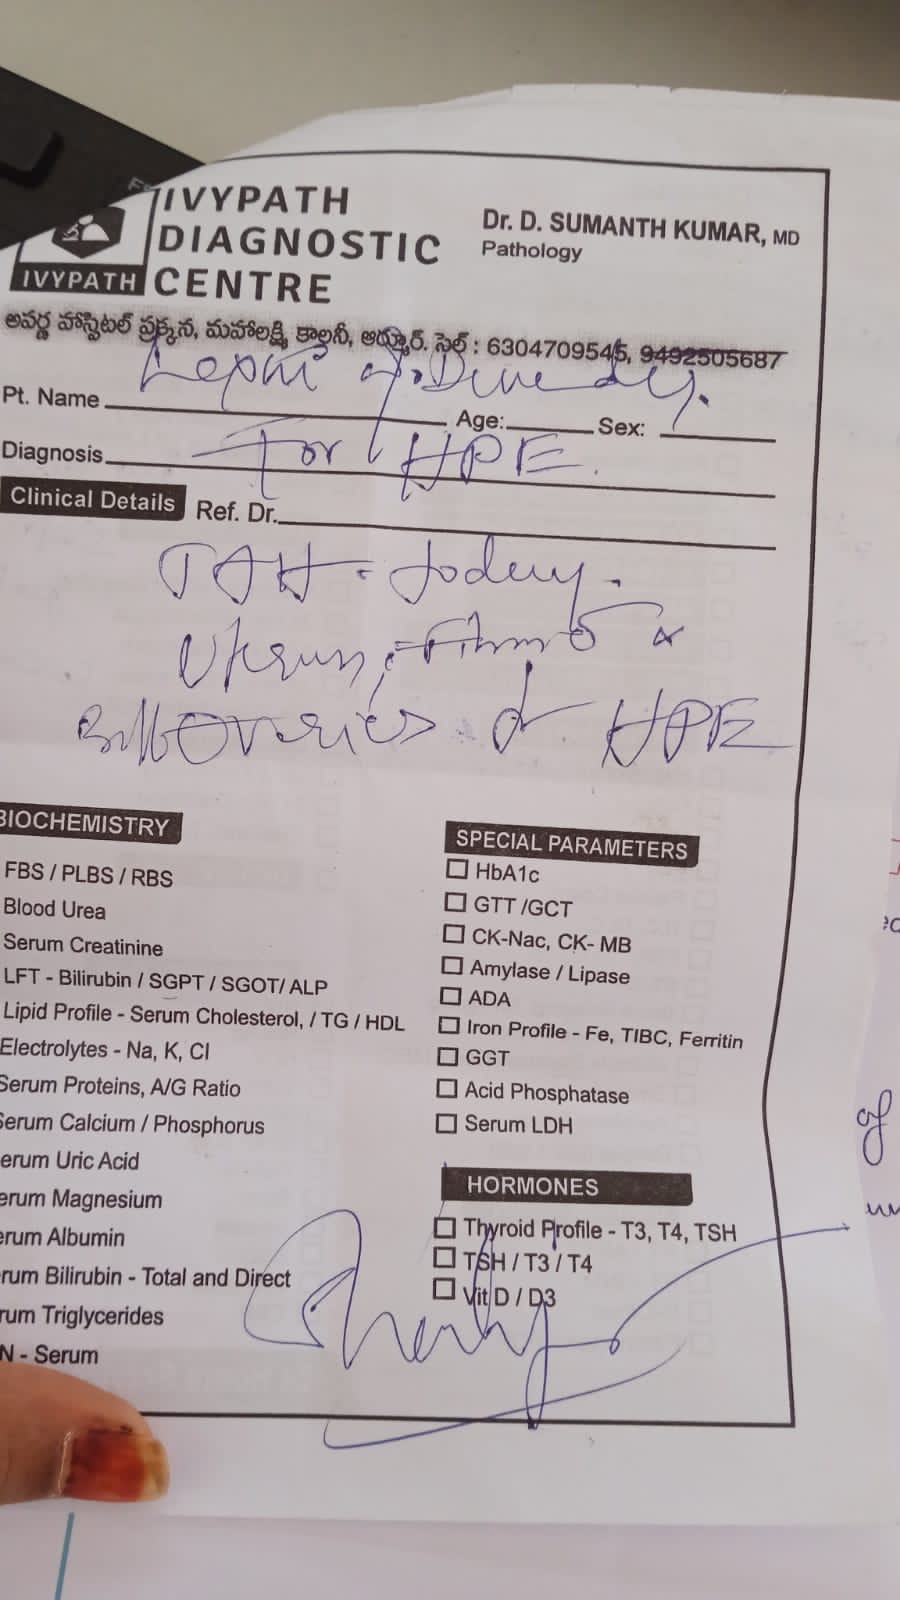 IVYPATH
DIAGNOSTIC
CENTRE
IVYPATH
Dr. D. SUMANTH KUMAR, MD
Pathology
అపర్ణ హాస్పిటల్ ప్రక్కన, మహాలక్ష్మి కాలనీ, ఆర్మూర్. సెల్ : 6304709545, 9492505687
Pt. Name Age: Sex:
For HPE.
Diagnosis
Clinical Details Ref. Dr.
TAH
Uterus,
Ovaries HPE
BIOCHEMISTRY
FBS / PLBS / RBS
Blood Urea
Serum Creatinine
LFT - Bilirubin / SGPT / SGOT/ ALP
Lipid Profile - Serum Cholesterol, / TG / HDL
Electrolytes - Na, K, Cl
Serum Proteins, A/G Ratio
Serum Calcium / Phosphorus
erum Uric Acid
erum Magnesium
erum Albumin
rum Bilirubin - Total and Direct
rum Triglycerides
N - Serum
SPECIAL PARAMETERS
HbA1c
GTT /GCT
CK-Nac, CK- MB
Amylase / Lipase
ADA
Iron Profile - Fe, TIBC, Ferritin
GGT
Acid Phosphatase
Serum LDH
HORMONES
Thyroid Profile - T3, T4, TSH
TSH / T3 / T4
Vit D / D3
of